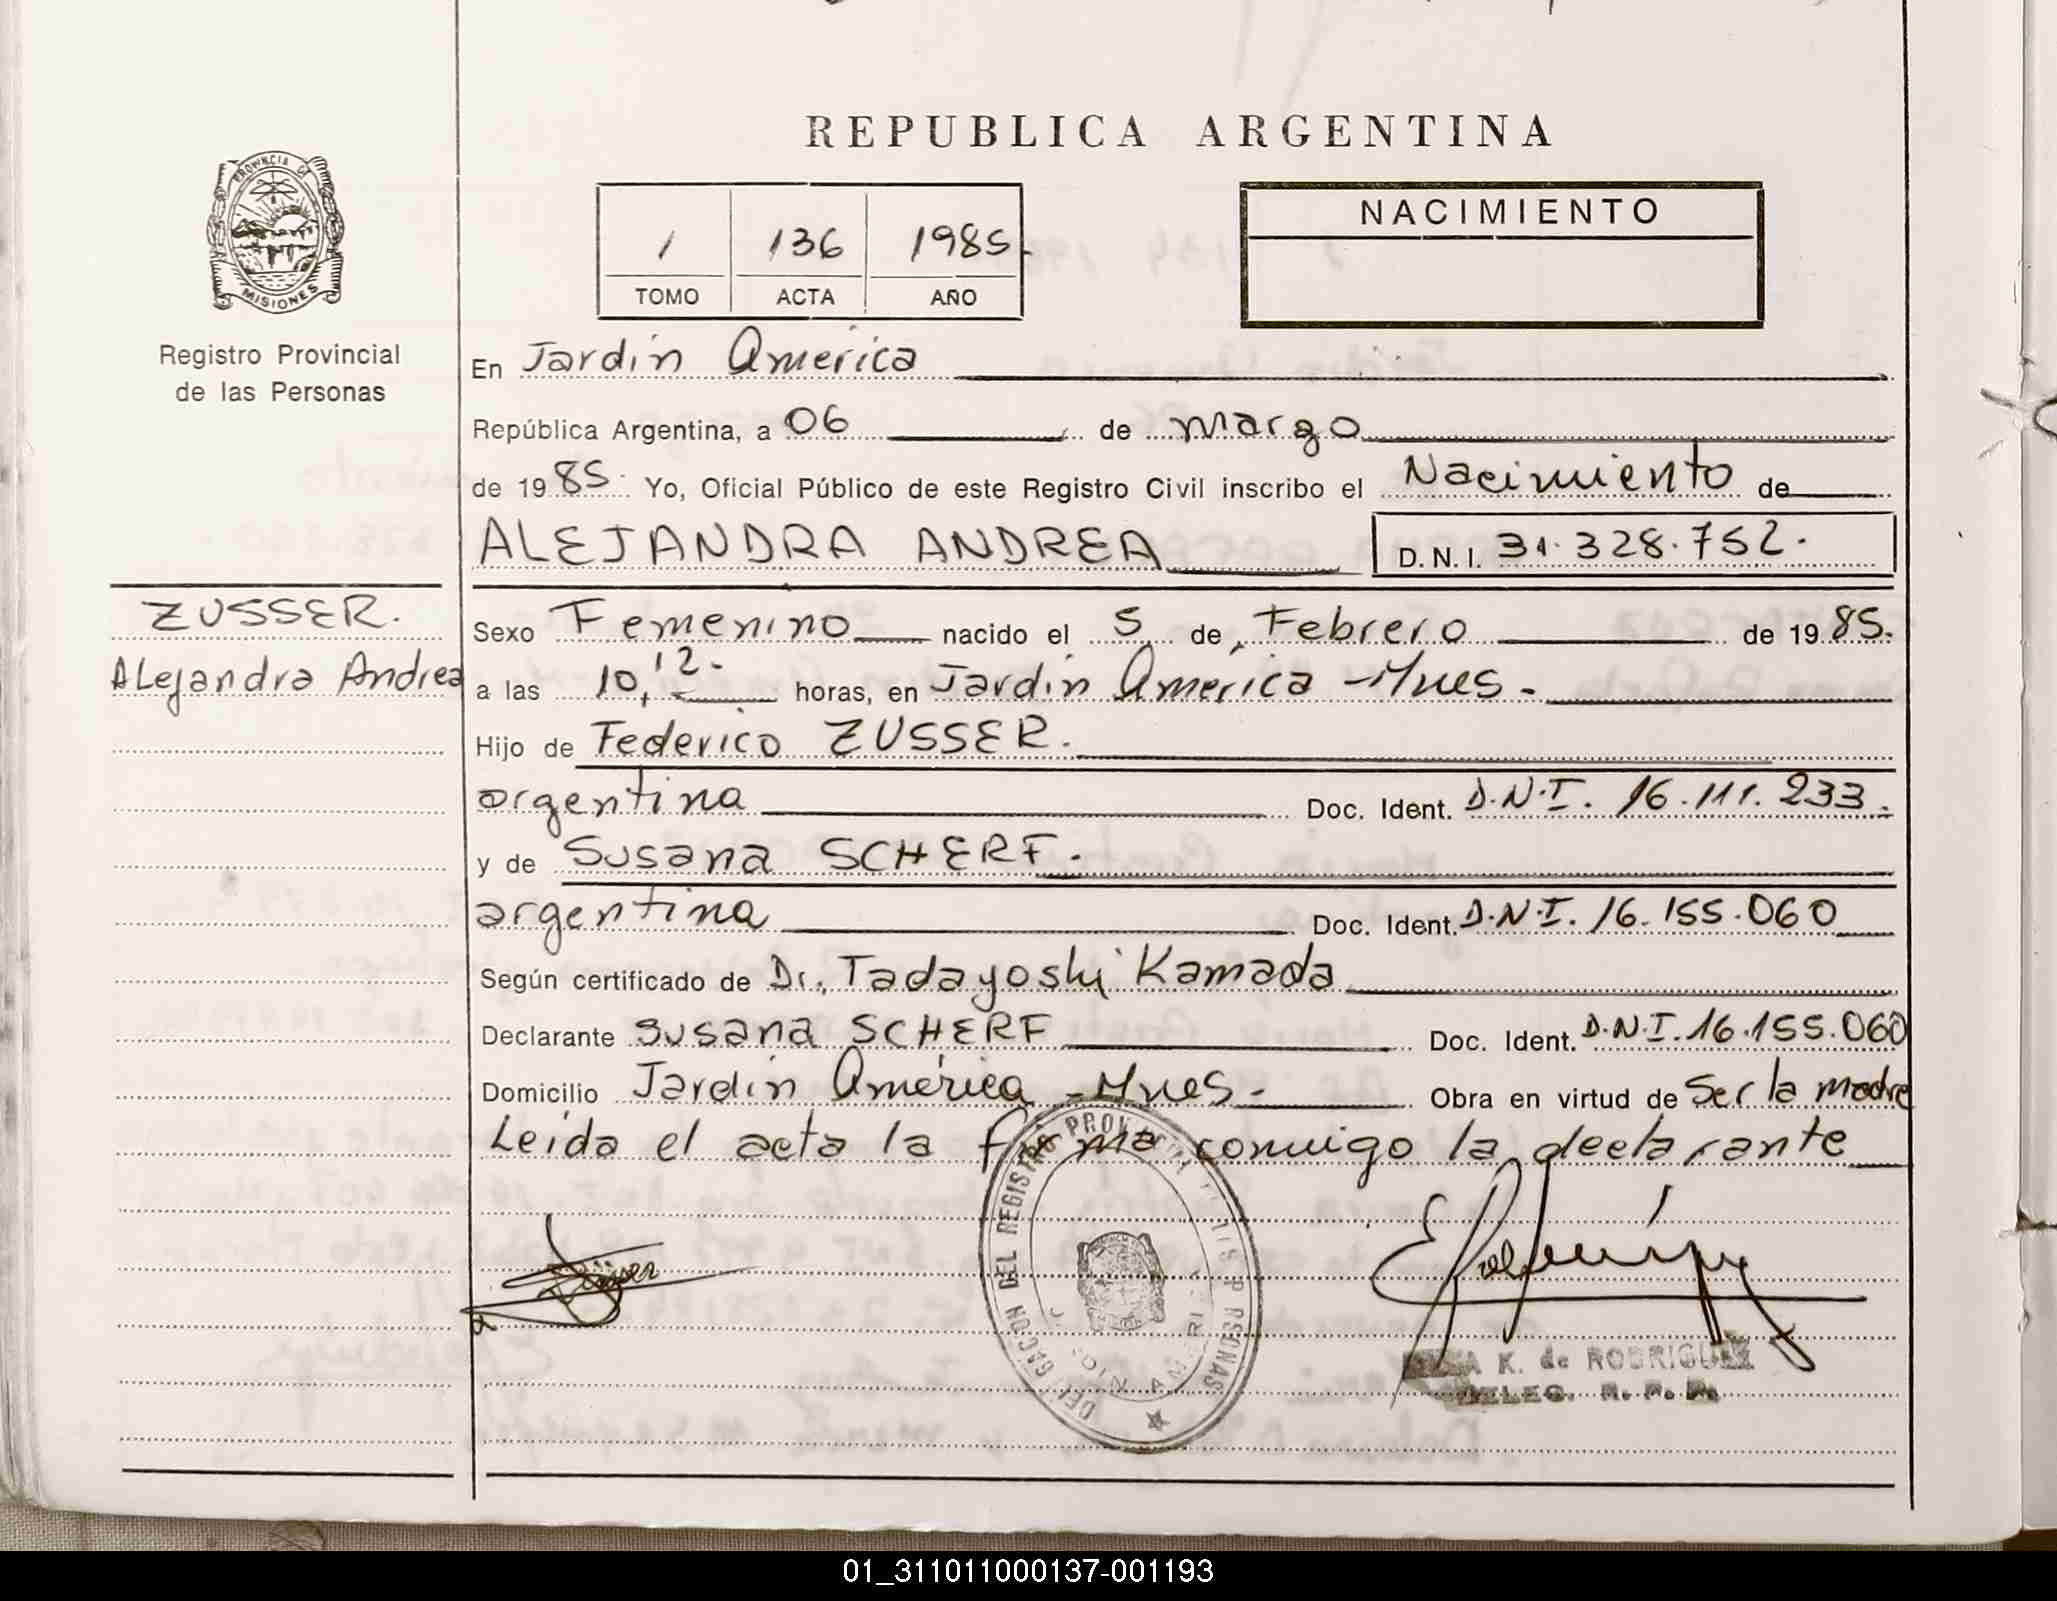 REPUBLICA ARGENTINA
PROVINCIA DE
MISIONES
Registro Provincial
de las Personas
1 136 1985.
TOMO ACTA AÑO
NACIMIENTO
En Jardín América
República Argentina, a 06 de marzo
de 1985. Yo, Oficial Público de este Registro Civil inscribo el Nacimiento de
ALEJANDRA ANDREA D.N.I. 31.328.752.
ZUSSER.
Alejandra Andrea
Sexo Femenino nacido el 5 de Febrero de 1985.
a las 10,12. horas, en Jardín América - Mnes.
Hijo de Federico ZUSSER.
argentina Doc. Ident. D.N.I. 16.111.233.
y de Susana SCHERF.
argentina Doc. Ident. D.N.I. 16.155.060
Según certificado de Dr. Tadayoshi Kamada
Declarante Susana SCHERF Doc. Ident. D.N.I. 16.155.060
Domicilio Jardín América - Mnes. Obra en virtud de ser la madre
Leída el acta la firma conmigo la declarante
DELEGACION DEL REGISTRO PROVINCIAL DE LAS PERSONAS
JARDIN AMERICA
K. de RODRIGUEZ
DELEG. R. P. P.
01_311011000137-001193